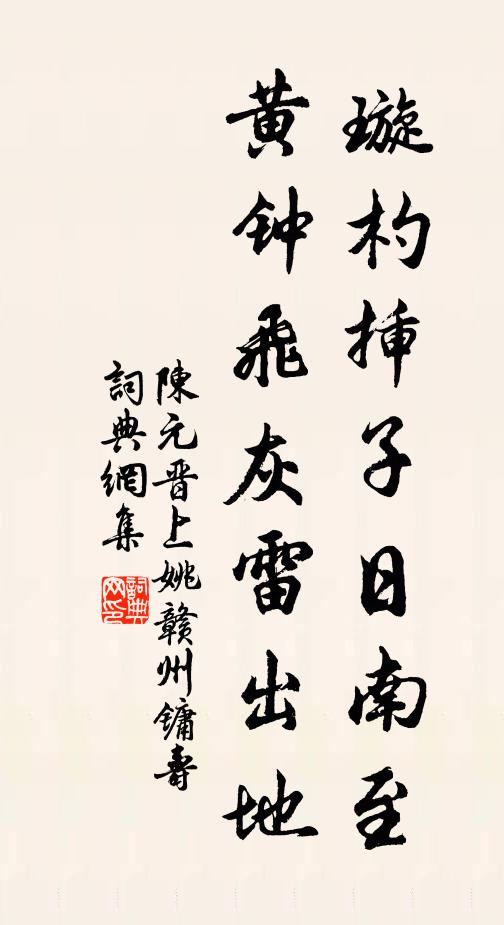 璇杓挿子日南至
黄钟飛灰雷出地
陳元晋上姚贛州鏞壽
詞典網集
詞典
网印